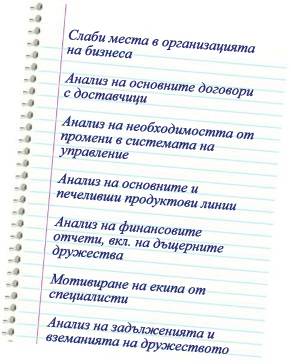 Слаби места в организацията
на бизнеса
Анализ на основните договори
с доставчици
Анализ на необходимостта от
промени в системата на
управление
Анализ на основните и
печеливши продуктови линии
Анализ на финансовите
отчети, вкл. на дъщерните
дружества
Мотивиране на екипа от
специалисти
Анализ на задълженията и
вземанията на дружеството